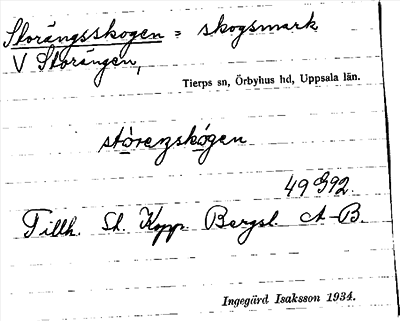 Storängsskogen = skogsmark
V Storängen,
Tierps sn, Örbyhus hd, Uppsala län.
stòreŋskógen
49 G92.
Tillh. St. Kopp. Bergsl. A-B.
Ingegärd Isaksson 1934.